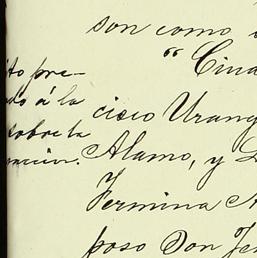 son como
" Ciud
ito pre-
do á la
sobre la
cisco Urang
Alamo, y
Y
Fermina
poso Don Je